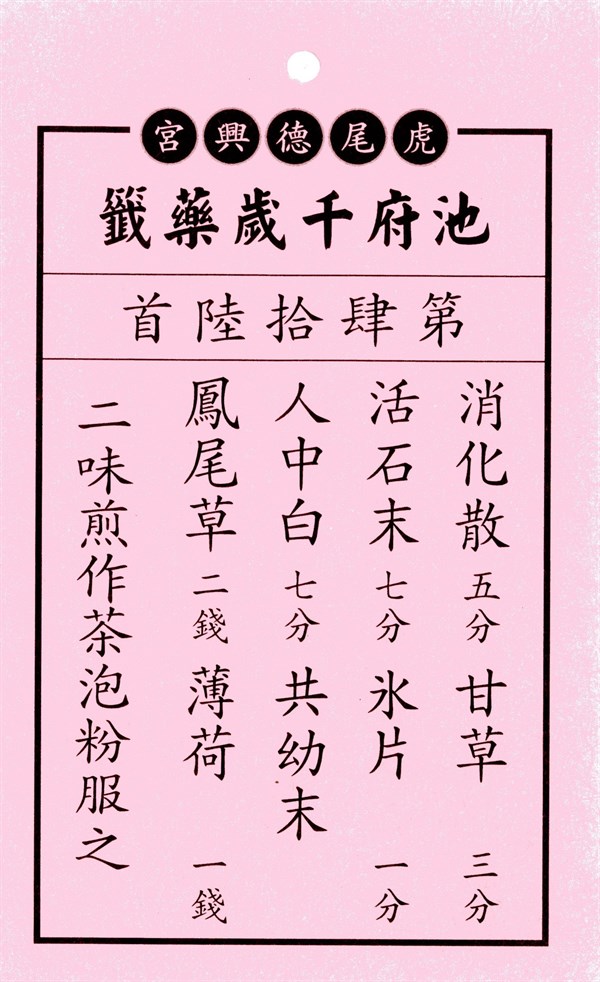 虎尾德興宮
池府千歲藥籤
第肆拾陸首
消化散五分甘草三分
活石末七分氷片一分
人中白七分共幼末
鳳尾草二錢薄荷一錢
二味煎作茶泡粉服之